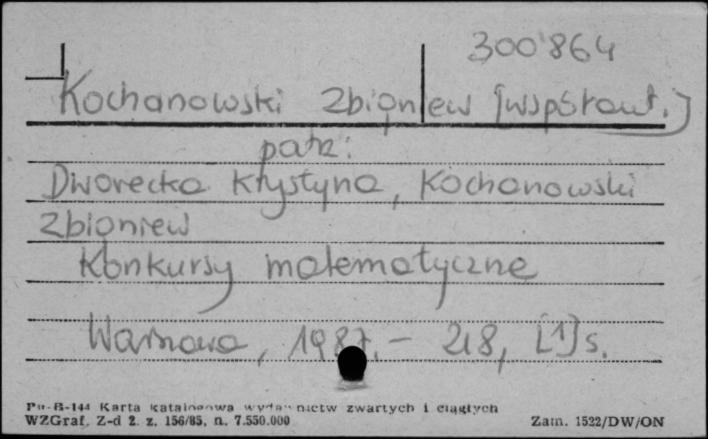 300'864
Kochanowski Zbigniew [współaut.]
patrz:
Dworecka Krystyna, Kochanowski
Zbigniew
Konkursy matematyczne
Warszawa, 1987. - 218, [1] s.
Pu-B-144 Karta katalogowa wydawnictw zwartych i ciągłych
WZGraf. Z-d 2. z. 156/85, n. 7.550.000
Zam. 1522/DW/ON